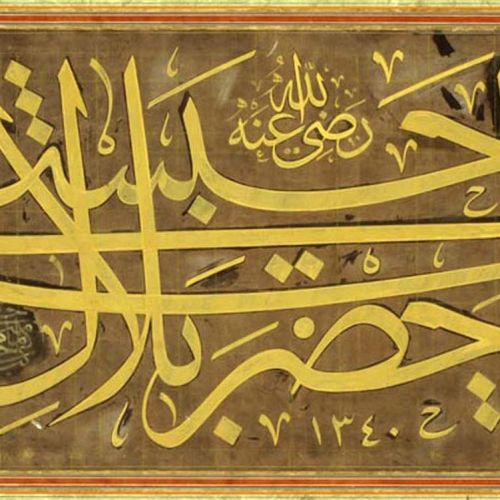 حضرت بلال
حبشی
رضی الله عنه
١٣٤٠